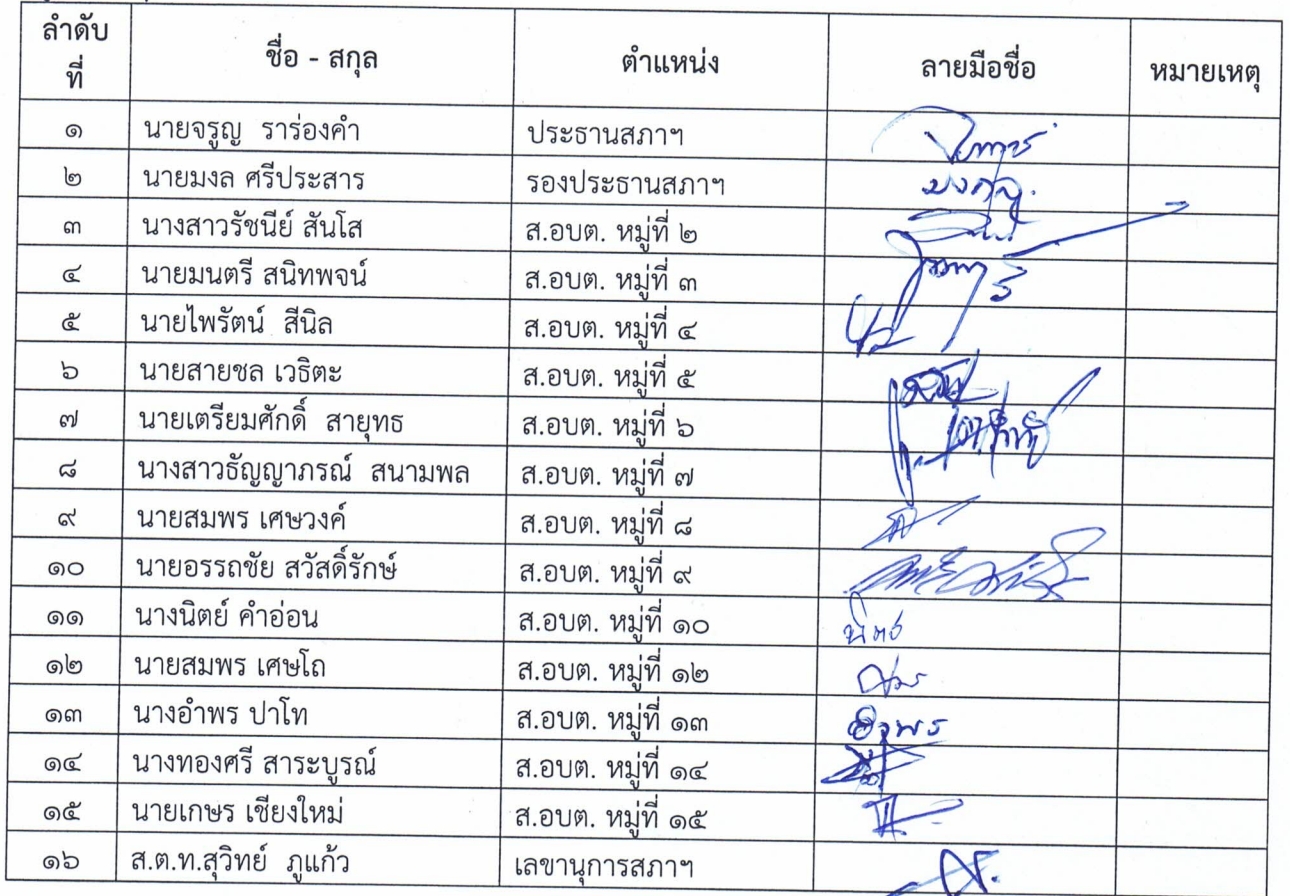 ลำดับ ที่ ชื่อ - สกุล ตำแหน่ง ลายมือชื่อ หมายเหตุ
๑ นายจรูญ ราร่องคำ ประธานสภาฯ
๒ นายมงล ศรีประสาร รองประธานสภาฯ
๓ นางสาวรัชนีย์ สันโส ส.อบต. หมู่ที่ ๒
๔ นายมนตรี สนิทพจน์ ส.อบต. หมู่ที่ ๓
๕ นายไพรัตน์ สีนิล ส.อบต. หมู่ที่ ๔
๖ นายสายชล เวธิตะ ส.อบต. หมู่ที่ ๕
๗ นายเตรียมศักดิ์ สายุทธ ส.อบต. หมู่ที่ ๖
๘ นางสาวธัญญาภรณ์ สนามพล ส.อบต. หมู่ที่ ๗
๙ นายสมพร เศษวงค์ ส.อบต. หมู่ที่ ๘
๑๐ นายอรรถชัย สวัสดิ์รักษ์ ส.อบต. หมู่ที่ ๙
๑๑ นางนิตย์ คำอ่อน ส.อบต. หมู่ที่ ๑๐ นิตย์
๑๒ นายสมพร เศษโถ ส.อบต. หมู่ที่ ๑๒
๑๓ นางอำพร ปาโท ส.อบต. หมู่ที่ ๑๓
๑๔ นางทองศรี สาระบูรณ์ ส.อบต. หมู่ที่ ๑๔
๑๕ นายเกษร เชียงใหม่ ส.อบต. หมู่ที่ ๑๕
๑๖ ส.ต.ท.สุวิทย์ ภูแก้ว เลขานุการสภาฯ